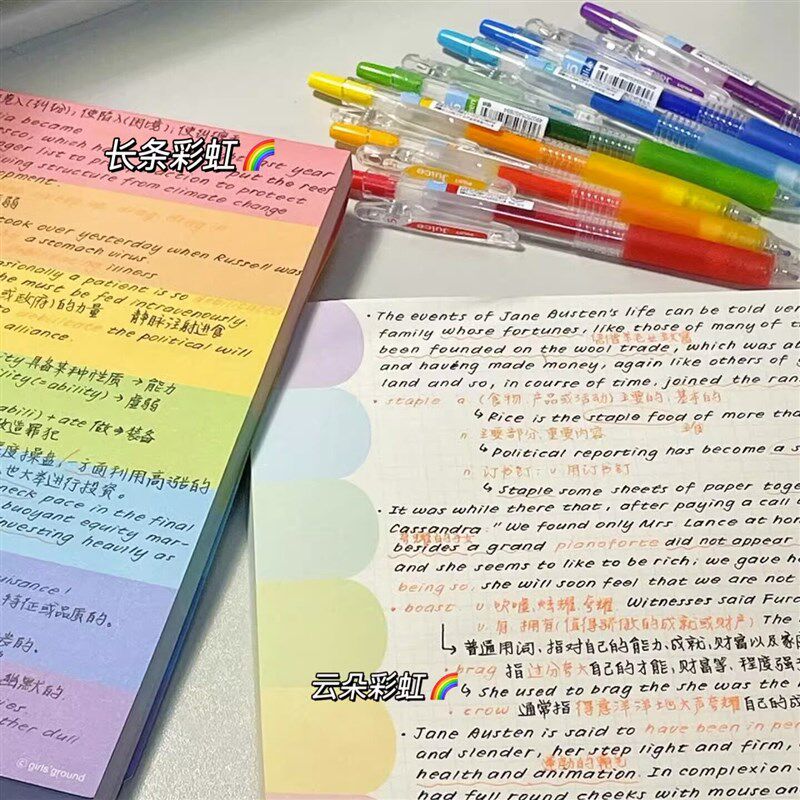 陷入(纠纷), 使陷入(困境),
ia became
esco, which ha
st year
nger list to p
tion to protect
out the reef
oving structure from climate change
opment.
弱
took over yesterday when Russell was
a stomach virus.
illness
asionally a patient is so
he must be fed intravenously.
或政府)的力量 静脉注射进食
the political will
alliance.
具备某种性质 → 能力
bility(=ability) → 虚弱
abili) + ate 做 → 装备
改造罪犯
度操盘/方面利用高涨的
也大举进行投资。
neck pace in the final
buoyant equity mar-
nvesting heavily as
uisance!
特征或品质的。
的.
幽默的
ves
ther dull
© girls'ground
长条彩虹🌈
Juice
Juice
Juice
· The events of Jane Austen's life can be told ver
family whose fortunes, like those of many of t
been founded on the wool trade, which was at
and having made money, again like others of
land and so, in course of time, joined the ran
· staple a (食物、产品或活动)主要的,基本的
↳ Rice is the staple food of more tha
主食
n 主要部分,重要内容
↳ Political reporting has become a s
n 订书钉; v 用订书钉
↳ Staple some sheets of paper toge
· It was while there that, after paying a call
Cassandra: "We found only Mrs Lance at hom
besides a grand pianoforte did not appear
and she seems to like to be rich; we gave h
being so, she will soon feel that we are not
· boast v 吹嘘,炫耀,夸耀 Witnesses said Furc
v 有,拥有(值得骄傲的成就或财产) The
↳ 普通用词,指对自己的能力、成就、财富以及家庭
· brag 指过分夸大自己的才能,财富等,程度强
↳ She used to brag the she was the b
· crow 通常指得意洋洋地大声夸耀自己的成
· Jane Austen is said to have been in pe
and slender, her step light and firm,
health and animation. In complexion
had full round cheeks with mouse an
云朵彩虹🌈